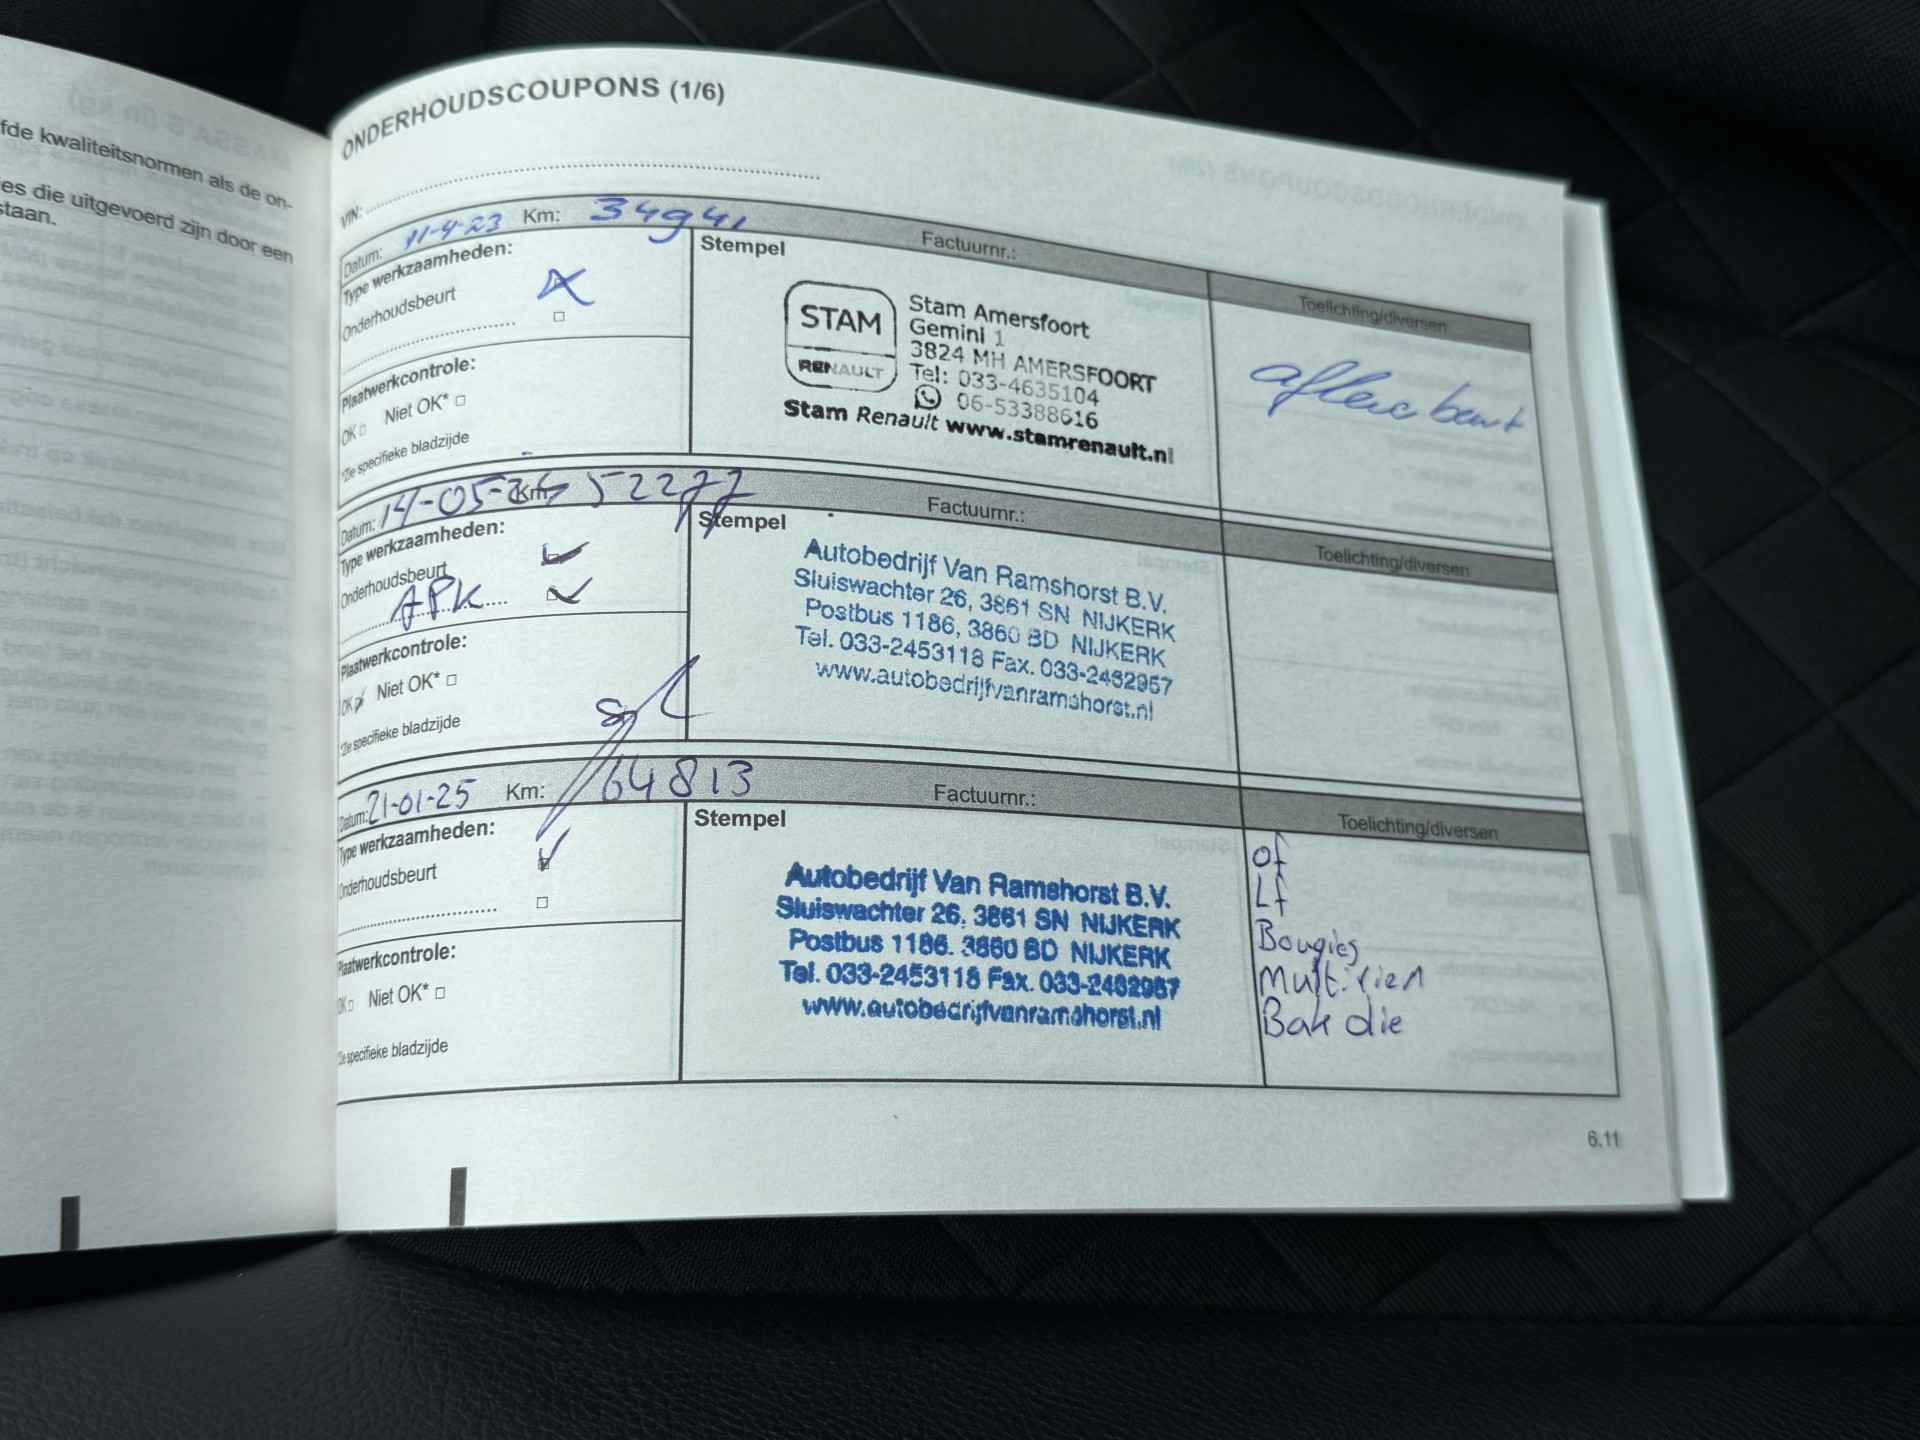 fde kwaliteitsnormen als de on-
es die uitgevoerd zijn door een
staan.
ONDERHOUDSCOUPONS (1/6)
VIN:
Datum: 11-4-23 Km: 34941 Factuurnr.:
Type werkzaamheden:
Onderhoudsbeurt
Plaatwerkcontrole:
OK Niet OK*
*Zie specifieke bladzijde
Stempel
STAM
RENAULT
Stam Amersfoort
Gemini 1
3824 MH AMERSFOORT
Tel: 033-4635104
06-53388616
Stam Renault www.stamrenault.nl
Toelichting/diversen
aflever beurt
Datum: 14-05-24 Km: 52277 Factuurnr.:
Type werkzaamheden:
Onderhoudsbeurt
APK
Plaatwerkcontrole:
OK Niet OK*
*Zie specifieke bladzijde
Stempel
Autobedrijf Van Ramshorst B.V.
Sluiswachter 26, 3861 SN NIJKERK
Postbus 1186, 3860 BD NIJKERK
Tel. 033-2453118 Fax. 033-2462957
www.autobedrijfvanramshorst.nl
Toelichting/diversen
Datum: 21-01-25 Km: 64813 Factuurnr.:
Type werkzaamheden:
Onderhoudsbeurt
Plaatwerkcontrole:
OK Niet OK*
*Zie specifieke bladzijde
Stempel
Autobedrijf Van Ramshorst B.V.
Sluiswachter 26, 3861 SN NIJKERK
Postbus 1186. 3860 BD NIJKERK
Tel. 033-2453118 Fax. 033-2462957
www.autobedrijfvanramshorst.nl
Toelichting/diversen
Of
Lf
Bougies
Multiriem
6.11